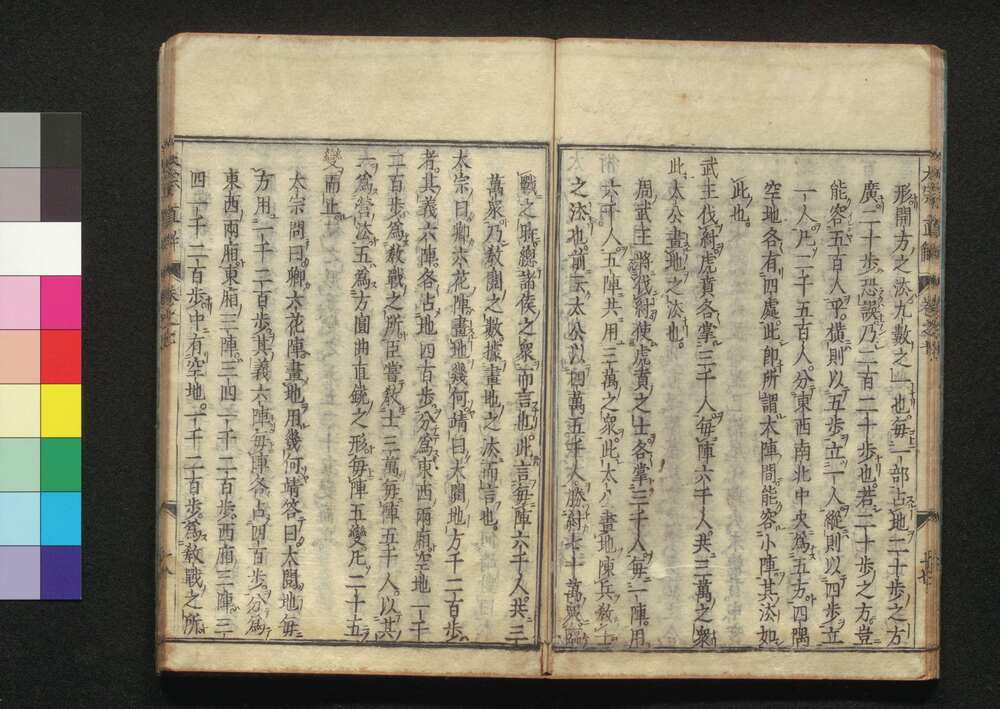 形開方之法九數之一也每一部占地二十步之方
廣二十步恐誤乃二百二十步也若二十步之方豈
能容五百人乎橫則以五步立一人縱則以四步立
一人凡二千五百人分東西南北中央為五方四隅
空地各有四處此即所謂大陣間能容小陣其法如
此也
武王伐紂虎賁各掌三千人每陣六千人共三萬之衆
此太公畫地之法也
周武王將伐紂使虎賁之士各掌三千人每一陣用
六千人五陣共用三萬之衆此太公畫地陳兵教士
之法也前云太公以四萬五千人勝紂七十萬衆
戰之際總諸侯之衆而言也此言每陣六千人共三
萬衆乃教閱之數據畫地之法而言也
太宗曰卿六花陣畫地幾何靖曰大閱地方千二百步
者其義六陣各占地四百步分為東西兩廂空地一千
二百步為教戰之所臣嘗教士三萬每陣五千人以其
一為營法五為方圓曲直銳之形每陣五變凡二十五
變而止
太宗問曰卿六花陣畫地用幾何靖答曰大閱地每
方用一千二百步其義六陣每陣各占四百步分為
東西兩廂東廂三陣三四一千二百步西廂三陣三
四一千二百步中有空地一千二百步為教戰之所